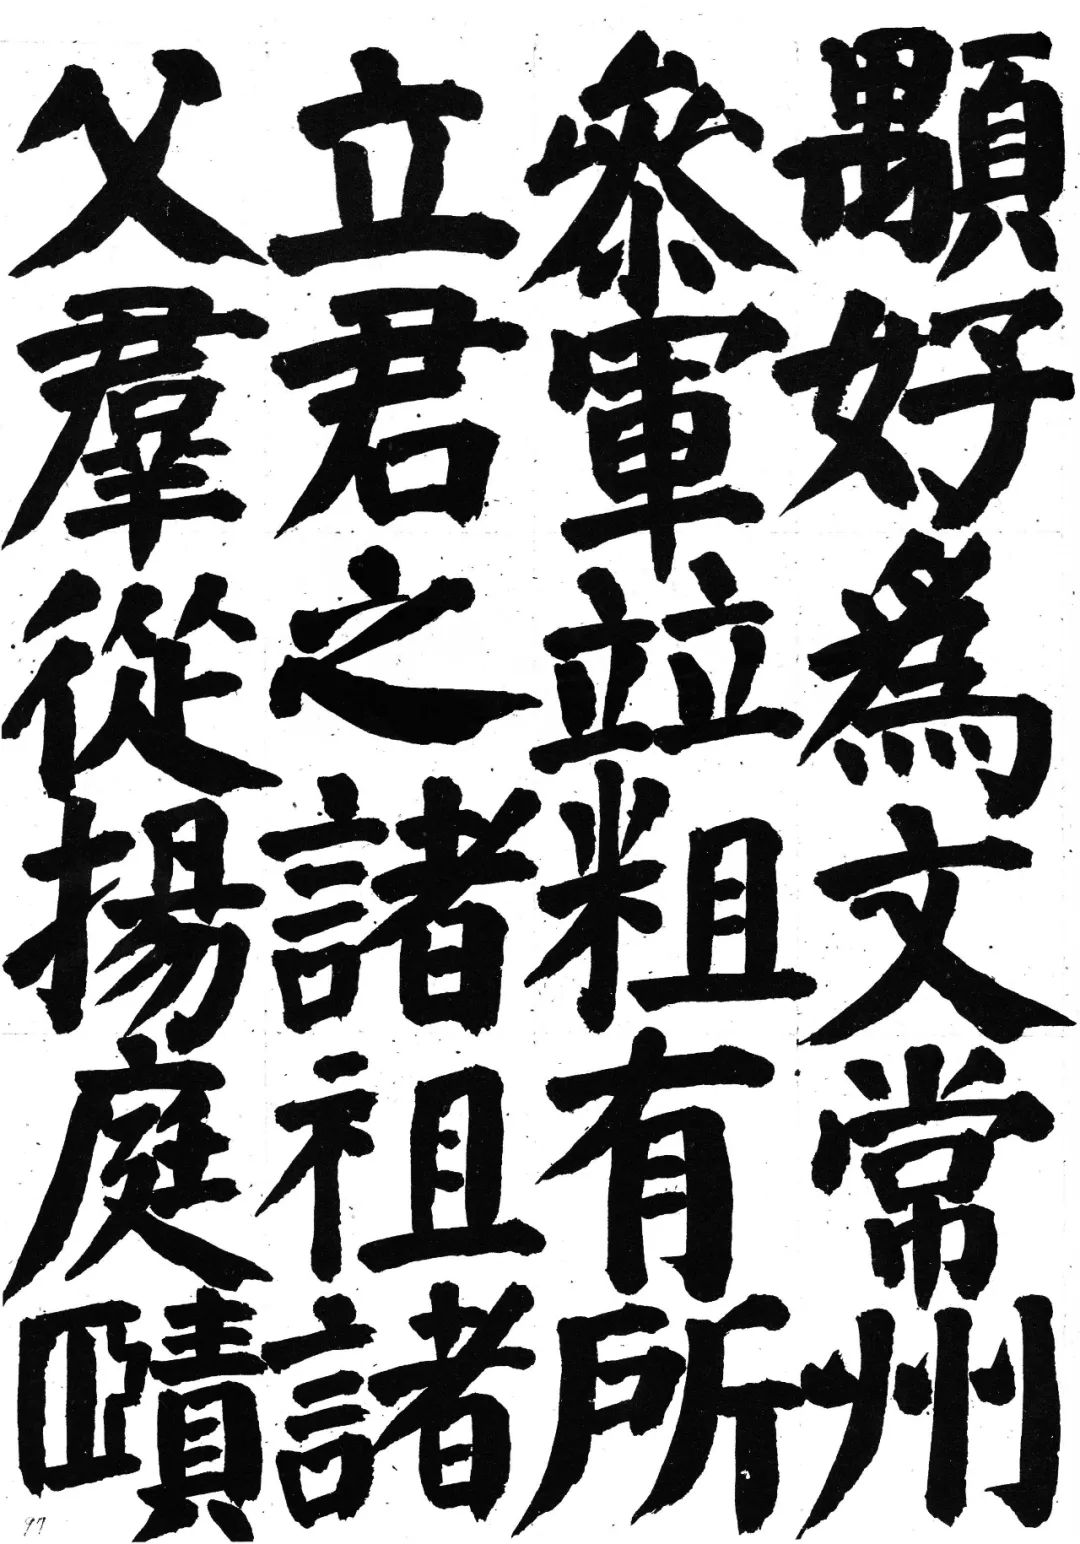 顒好爲文常州
參軍竝粗有所
立君之諸祖諸
父羣從揚庭賾
97